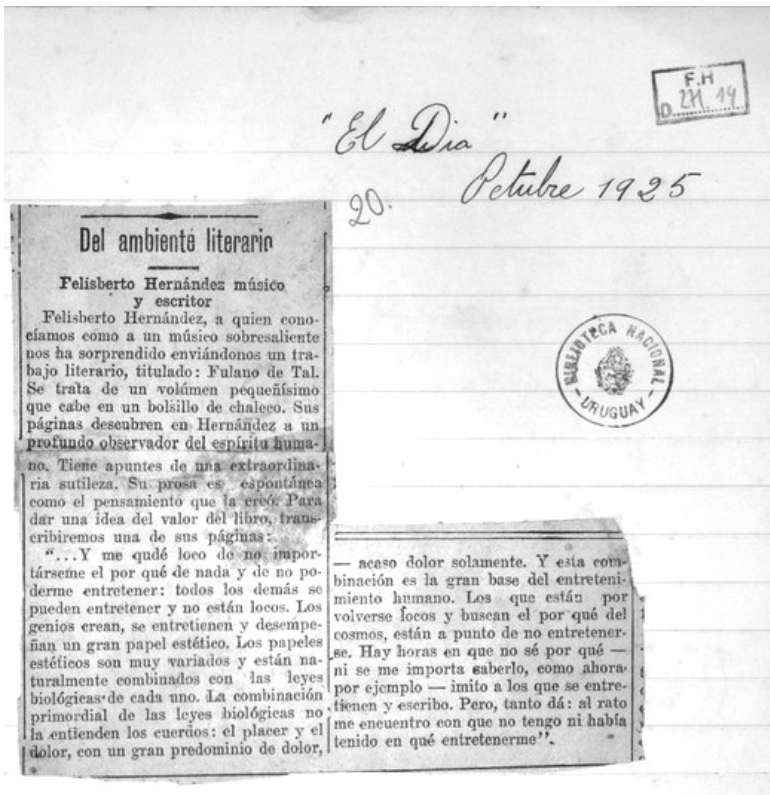 F.H
D. 271.14
"El Dia"
20.
Octubre 1925
BIBLIOTECA NACIONAL
URUGUAY
Del ambiente literario
Felisberto Hernández músico
y escritor
Felisberto Hernández, a quien cono-
cíamos como a un músico sobresaliente
nos ha sorprendido enviándonos un tra-
bajo literario, titulado: Fulano de Tal.
Se trata de un volúmen pequeñísimo
que cabe en un bolsillo de chaleco. Sus
páginas descubren en Hernández a un
profundo observador del espíritu huma-
no. Tiene apuntes de una extraordina-
ria sutileza. Su prosa es espontánea
como el pensamiento que la creó. Para
dar una idea del valor del libro, trans-
cribiremos una de sus páginas:
"...Y me qudé loco de no impor-
társeme el por qué de nada y de no po-
derme entretener: todos los demás se
pueden entretener y no están locos. Los
genios crean, se entretienen y desempe-
ñan un gran papel estético. Los papeles
estéticos son muy variados y están na-
turalmente combinados con las leyes
biológicas de cada uno. La combinación
primordial de las leyes biológicas no
la entienden los cuerdos: el placer y el
dolor, con un gran predominio de dolor,
— acaso dolor solamente. Y esta com-
binación es la gran base del entreteni-
miento humano. Los que están por
volverse locos y buscan el por qué del
cosmos, están a punto de no entretener-
se. Hay horas en que no sé por qué —
ni se me importa saberlo, como ahora
por ejemplo — imito a los que se entre-
tienen y escribo. Pero, tanto dá: al rato
me encuentro con que no tengo ni había
tenido en qué entretenerme".